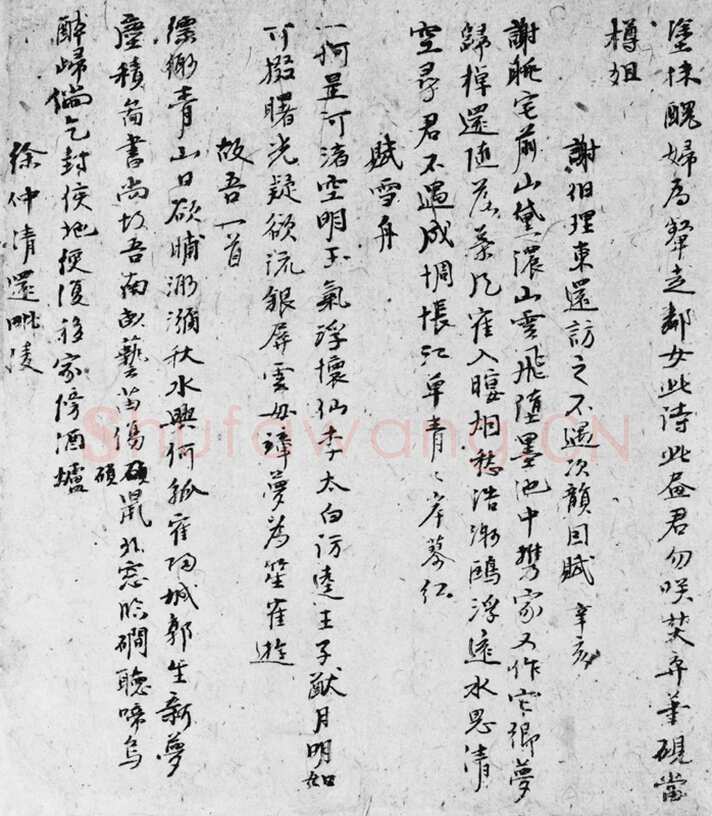 塗抹醜婦為顰走鄰女此詩此畫君勿咲焚弃筆硯當
樽俎
謝伯理東還訪之不遇次韻因賦 辛亥
謝眺宅前山黛濃山雲飛墮墨池中携家又作它鄉夢
歸棹還隨落葉風寉入暝烟愁浩渺鷗浮遠水思清
空尋君不遇成惆悵江草青〻岸蓼紅
賦雪舟
一舸星河渚空明玉氣浮懷仙李太白訪逵王子猷月明如
可掇曙光疑欲流銀屏雲母障夢為笙寉遊
故吾一首
縹緲青山日欲晡渺瀰秋水興何孤寉歸城郭生新夢
塵積圖書尚故吾南畝藝苗傷碩鼠北窓臨磵聽啼烏
碩
醉歸倘乞封侯地便復移家傍酒壚
徐仲清還毗陵
Shufawang.CN